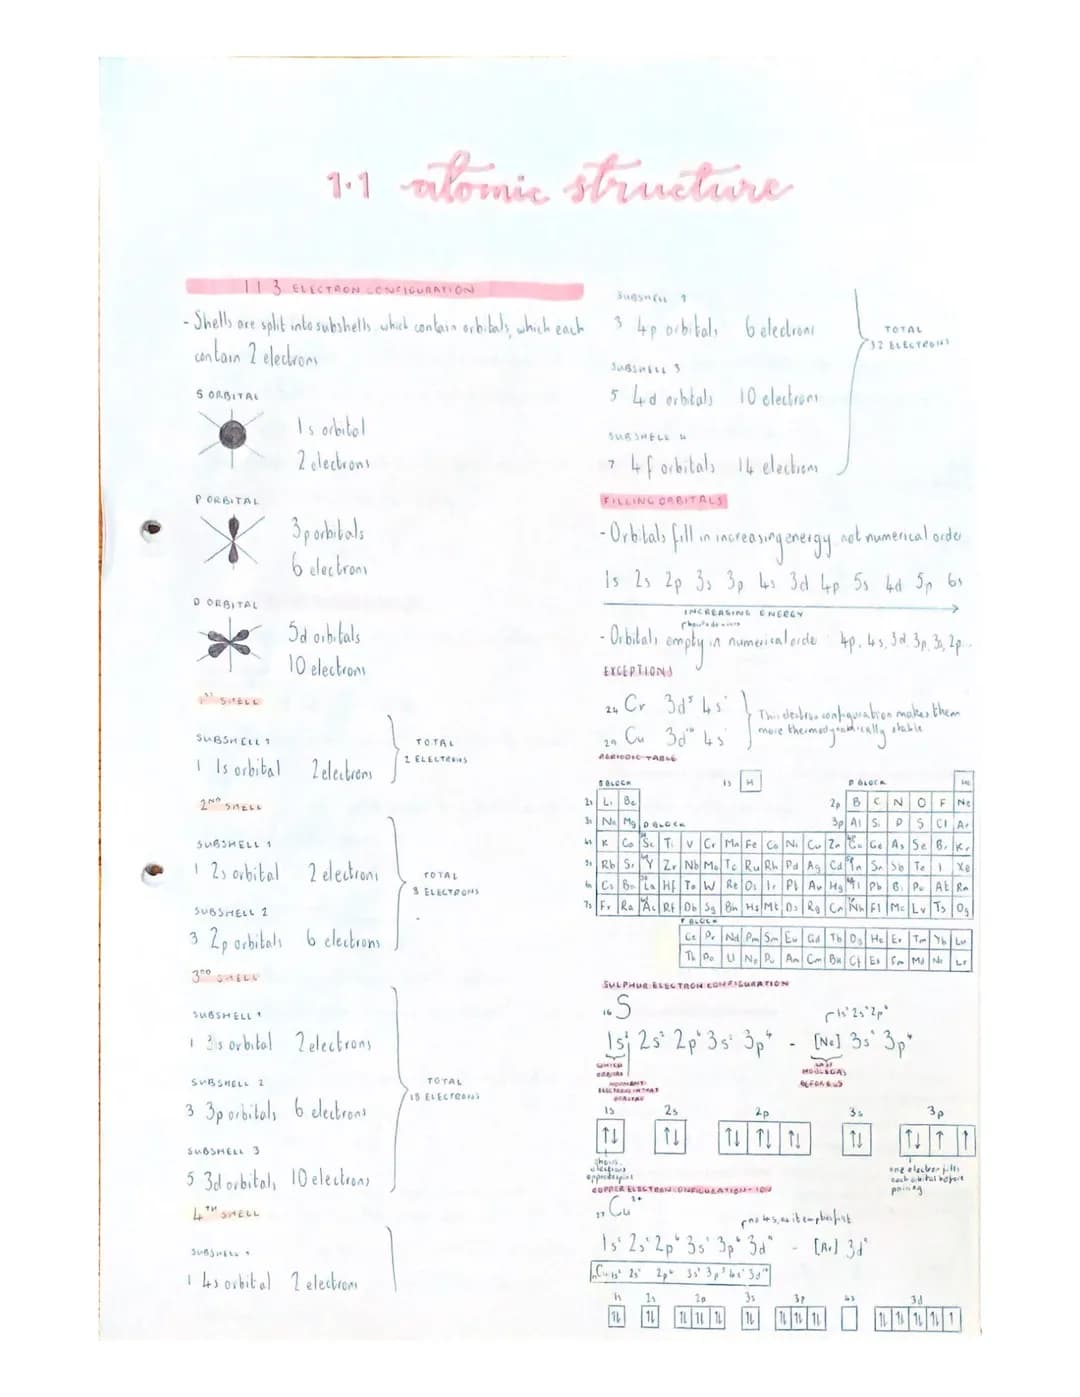 1.1 atomic structure
1.1.3 ELECTRON CONFIGURATION
- Shells are split into subshells which contain orbitals, which each
contain 2 electrons
S ORBITAL
1s orbital
2 electrons
P ORBITAL
3p orbitals
6 electrons
D ORBITAL
5d orbitals
10 electrons
1ST SHELL
SUBSHELL 1
1 1s orbital 2 electrons
TOTAL
2 ELECTRONS
2ND SHELL
SUBSHELL 1
1 2s orbital 2 electrons
SUBSHELL 2
3 2p orbitals 6 electrons
TOTAL
8 ELECTRONS
3RD SHELL
SUBSHELL 1
1 3s orbital 2 electrons
SUBSHELL 2
3 3p orbitals 6 electrons
SUBSHELL 3
5 3d orbitals 10 electrons
TOTAL
18 ELECTRONS
4TH SHELL
SUBSHELL 1
1 4s orbital 2 electrons
SUBSHELL 2
3 4p orbitals 6 electrons
SUBSHELL 3
5 4d orbitals 10 electrons
SUBSHELL 4
7 4f orbitals 14 electrons
TOTAL
32 ELECTRONS
FILLING ORBITALS
- Orbitals fill in increasing energy not numerical order
1s 2s 2p 3s 3p 4s 3d 4p 5s 4d 5p 6s
INCREASING ENERGY
- Orbitals empty in numerical order 4p, 4s, 3d, 3p, 3s, 2p...
EXCEPTIONS
24 Cr 3d⁵ 4s¹
29 Cu 3d¹⁰ 4s¹
This electron configuration makes them
more thermodynamically stable
PERIODIC TABLE
S BLOCK 1s H P BLOCK He
2s Li Be 2p B C N O F Ne
3s Na Mg D BLOCK 3p Al Si P S Cl Ar
4s K Ca Sc Ti V Cr Mn Fe Co Ni Cu Zn Ga Ge As Se Br Kr
5s Rb Sr Y Zr Nb Mo Tc Ru Rh Pd Ag Cd In Sn Sb Te I Xe
6s Cs Ba La Hf Ta W Re Os Ir Pt Au Hg Tl Pb Bi Po At Rn
7s Fr Ra Ac Rf Db Sg Bh Hs Mt Ds Rg Cn Nh Fl Mc Lv Ts Og
F BLOCK
Ce Pr Nd Pm Sm Eu Gd Tb Dy Ho Er Tm Yb Lu
Th Pa U Np Pu Am Cm Bk Cf Es Fm Md No Lr
SULPHUR ELECTRON CONFIGURATION
16 S
1s²2s²2p⁶
1s² 2s² 2p⁶ 3s² 3p⁴ - [Ne] 3s² 3p⁴
WHICH
ORBITAL
HOW MANY
ELECTRONS IN THAT
ORBITAL
LAST
NOBLE GAS
BEFORE S
1s 2s 2p 3s 3p
↑↓ ↑↓ ↑↓ ↑↓ ↑↓ ↑↓ ↑↓ ↑ ↑
shows
electrons
opposite spins
one electron fills
each orbital before
pairing
COPPER ELECTRON CONFIGURATION - ION
Cu²⁺
no 4s, as it empties first
1s² 2s² 2p⁶ 3s² 3p⁶ 3d⁹ - [Ar] 3d⁹
1s 2s 2p 3s 3p 4s 3d